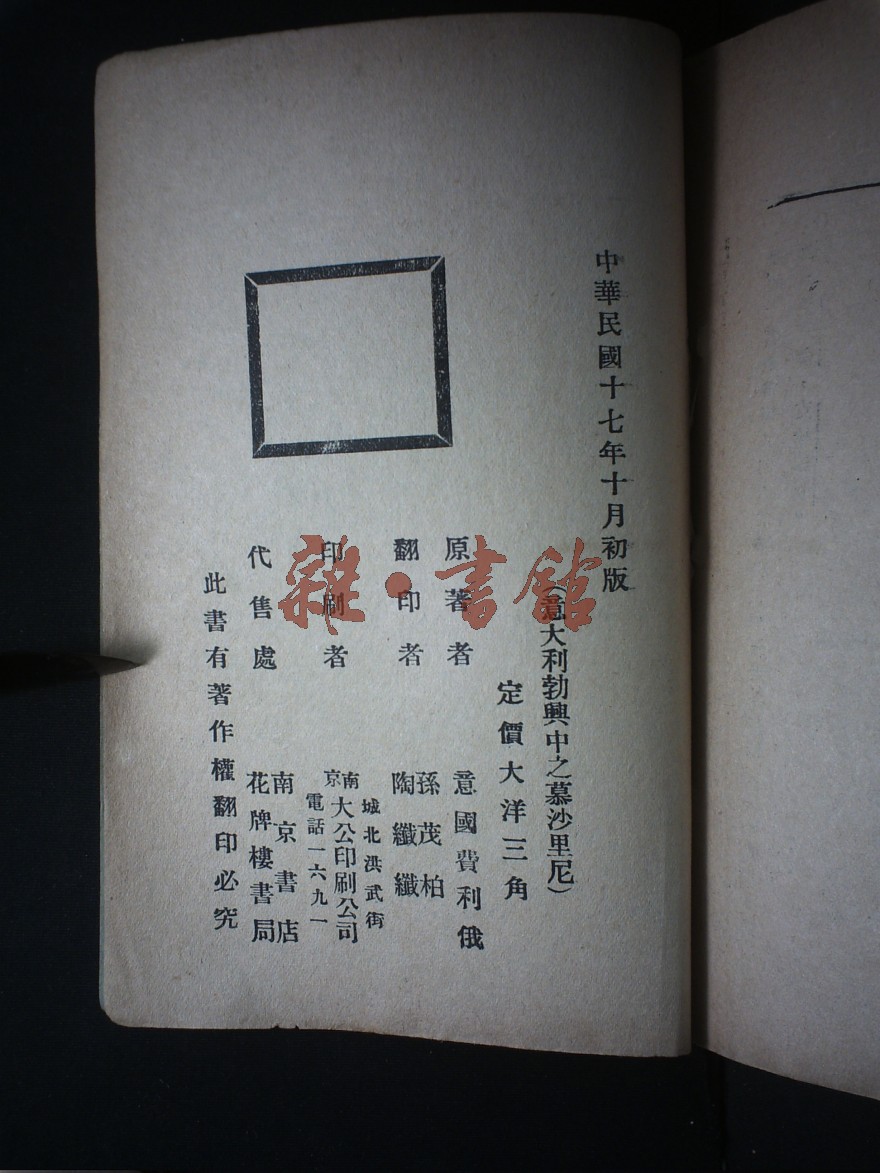 中華民國十七年十月初版
(意大利勃興中之慕沙里尼)
定價大洋三角
原著者 意國費利俄
翻印者 孫茂柏
陶纖纖
印刷者 城北洪武街
南京大公印刷公司
電話一六九一
代售處 南京書店
花牌樓書局
此書有著作權翻印必究
雜·書館